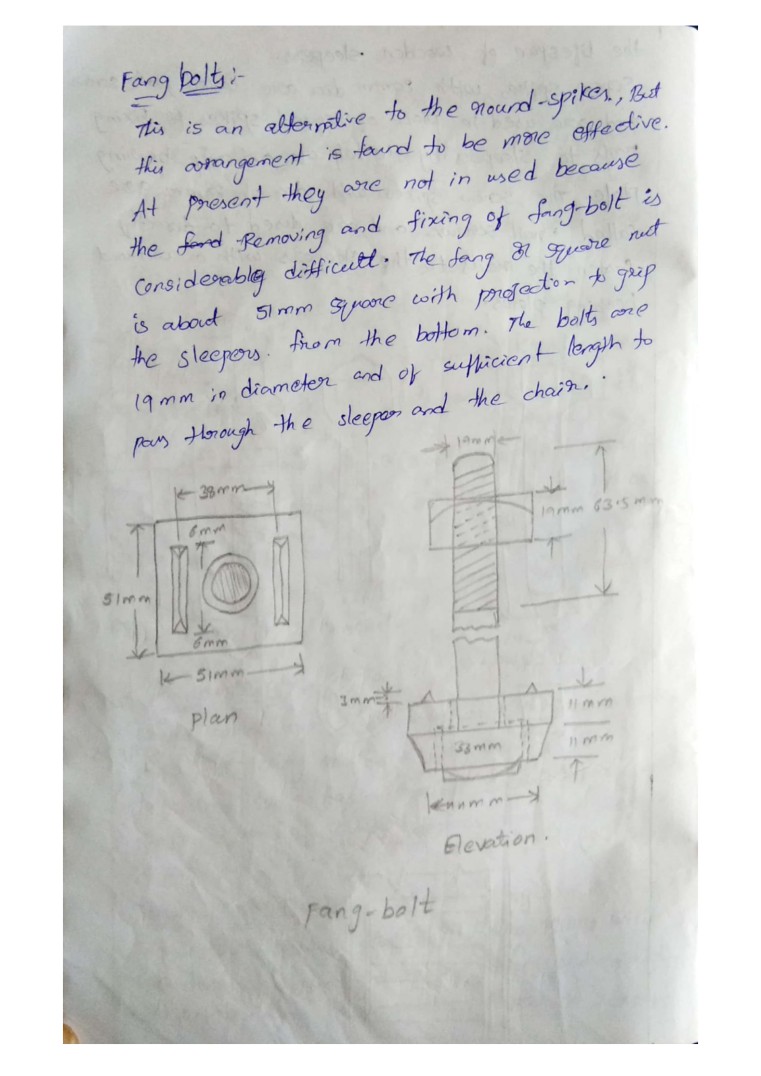 Fang bolts:-
This is an alternative to the round-spikes, But
this arrangement is found to be more effective.
At present they are not in used because
the Removing and fixing of fang-bolt is
considerably difficult. The fang or square nut
is about 51mm square with projection to grip
the sleepers. from the bottom. The bolts are
19mm in diameter and of sufficient length to
pass through the sleeper and the chair.
19mm
38mm
6mm
51mm
6mm
51mm
Plan
19mm
63.5mm
3mm
11mm
33mm
11mm
Elevation.
Fang-bolt